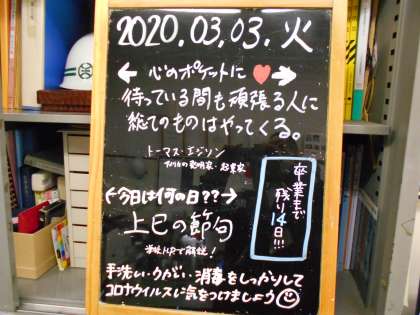 2020.03.03.火
← 心のポケットに ♥→
待っている間も頑張る人に
総てのものはやってくる。
トーマス・エジソン
アメリカの発明家・起業家
←今日は何の日??→
上巳の節句
学校HPで解説!
卒業まで
残り14日!!!
手洗い・うがい・消毒をしっかりして
コロナウイルスに気をつけましょう☺